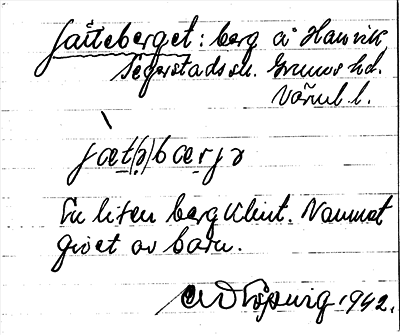 Jätteberget: berg å Hamvik
Segerstads sn. Grums hd.
Värml. l.
jæt(ə)bærjə
En liten bergklint. Namnet
givet av barn.
1942.